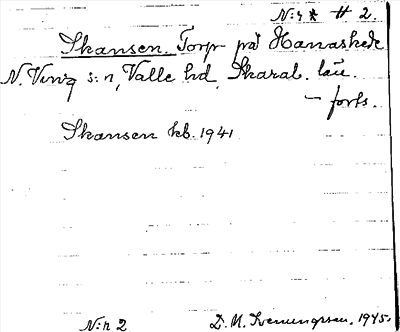 N:r * H 2.
Skansen. Torp på Hamaskede
N. Ving s:n, Valle hd, Skarab. län.
– forts.
Skansen kb. 1941
N:r 2
D. M. 1945.